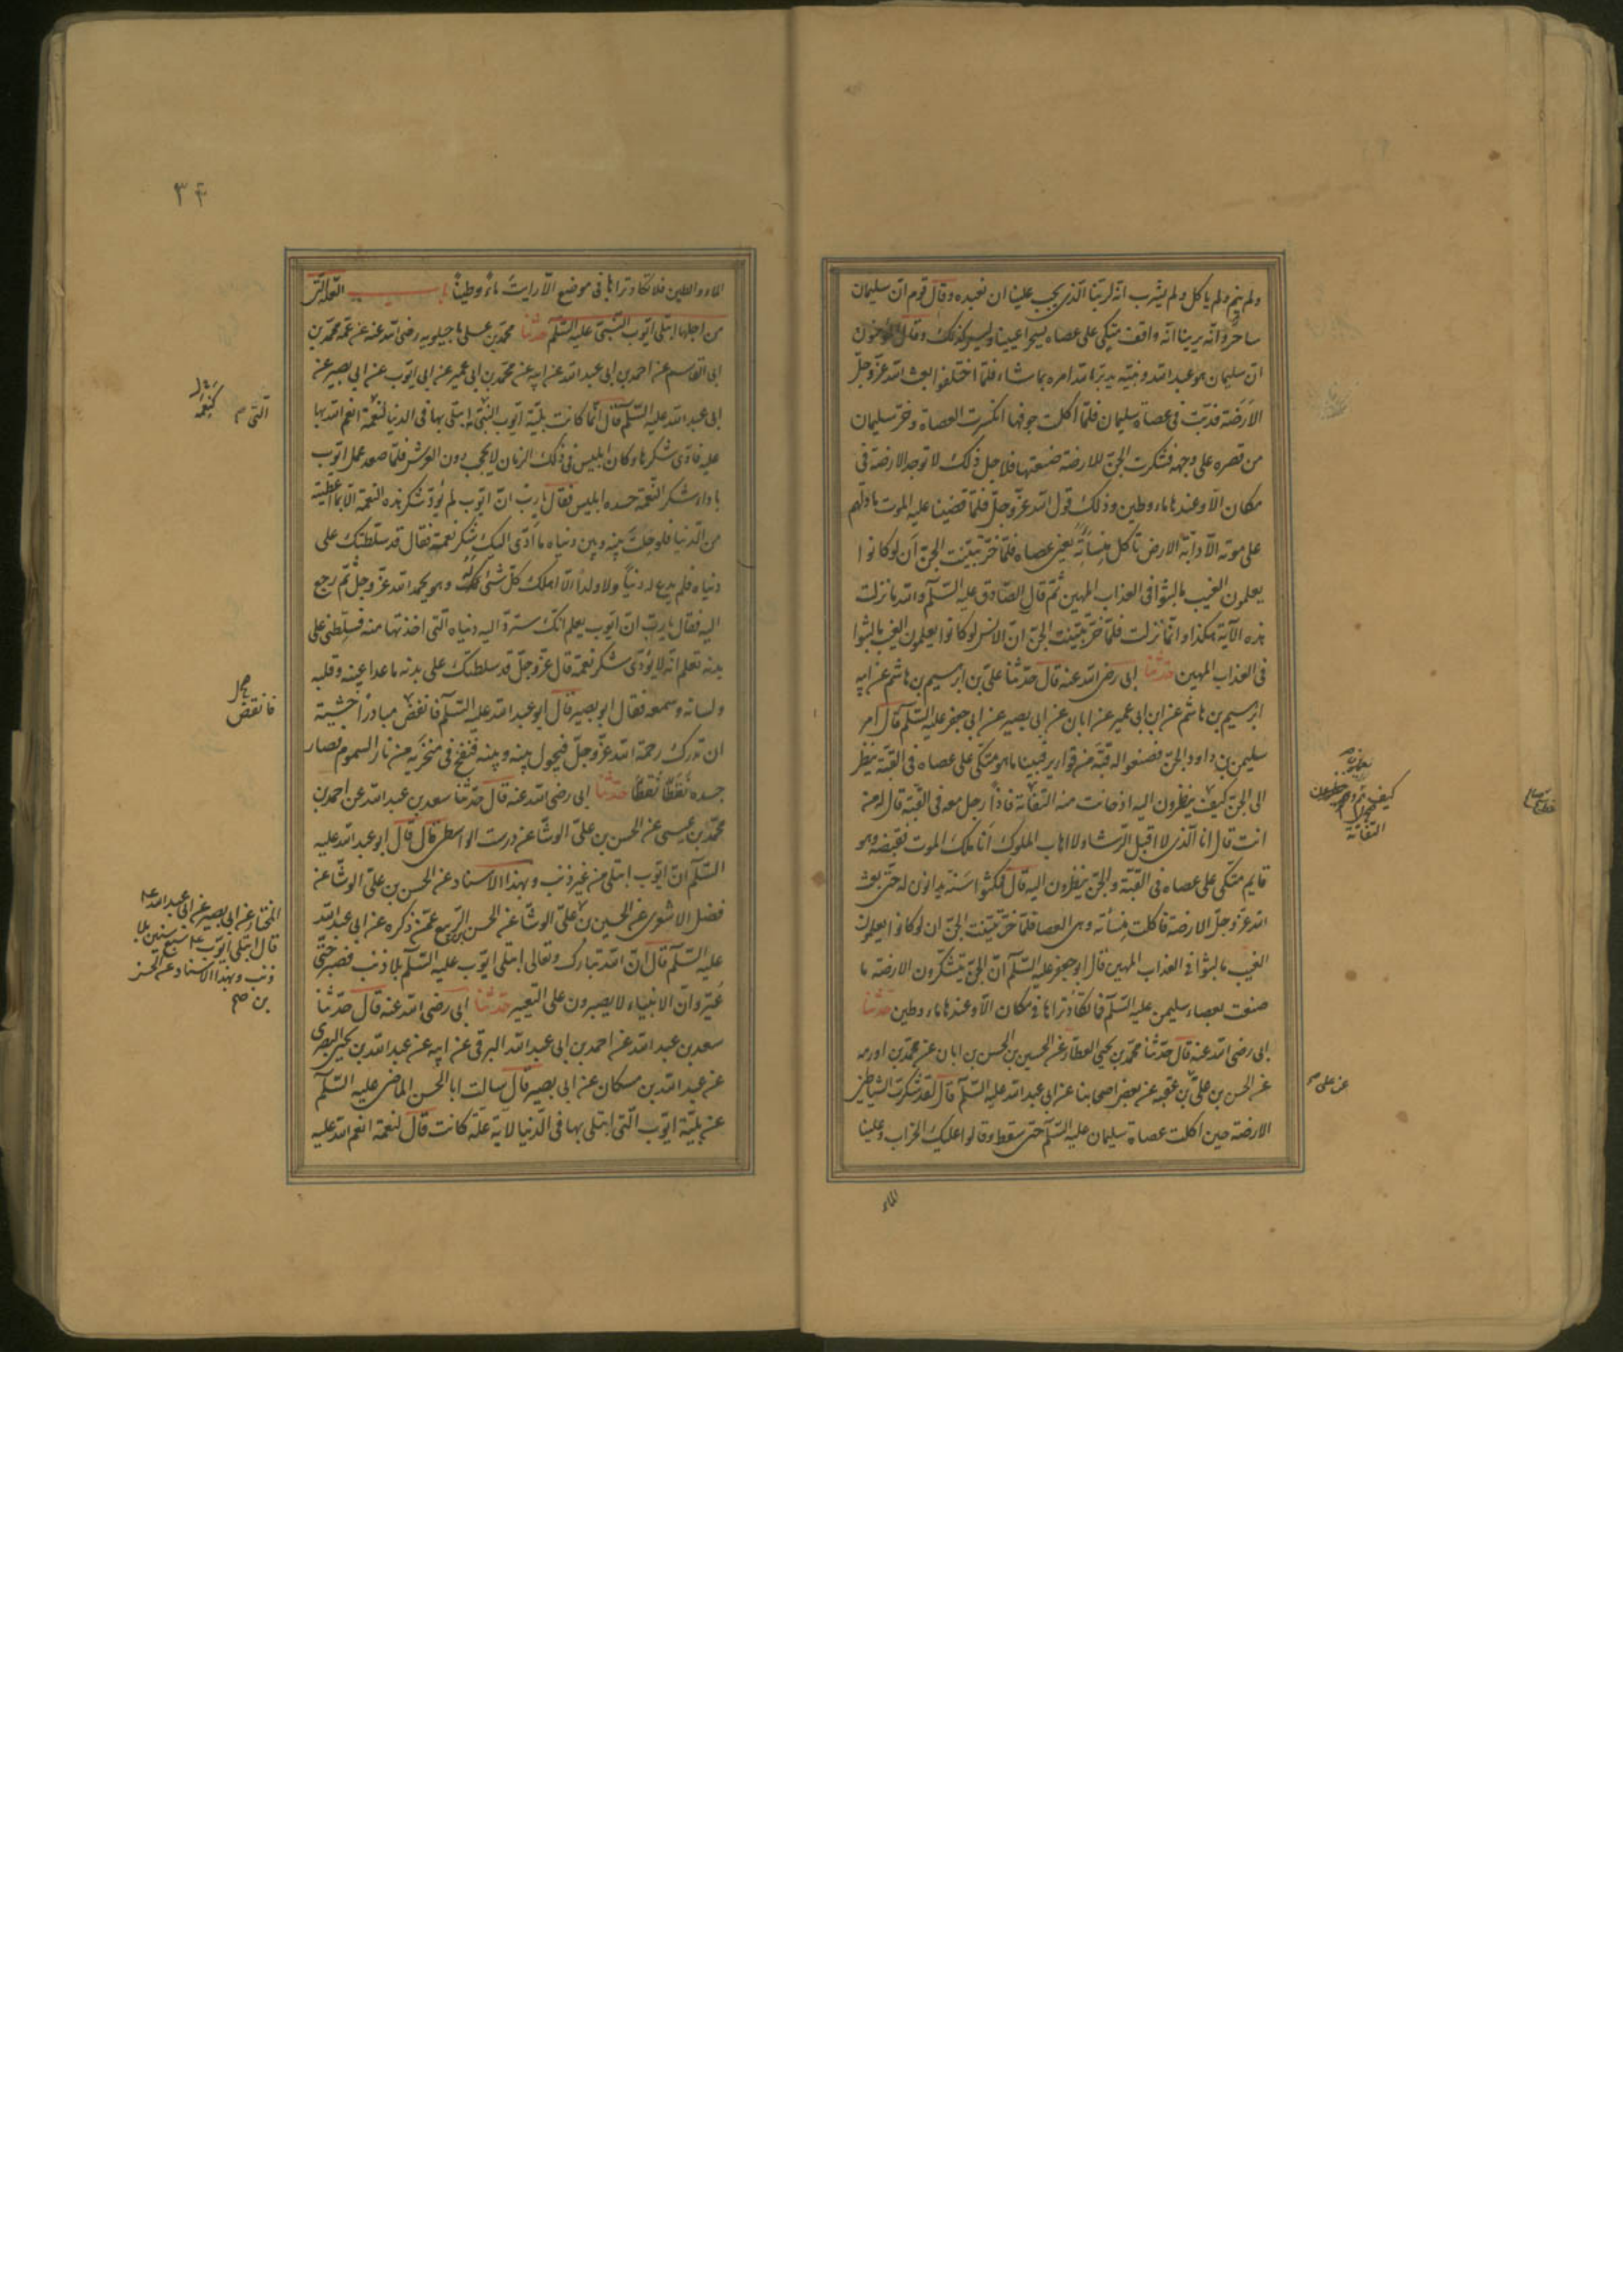 ولم ينم ولم ياكل ولم يشرب انه لربنا الذى يجب علينا ان نعبده وقال قوم ان سليمان
ساحر وانه يرينا انه واقف متكى على عصاه يسحر اعيننا وليس كذلك وقال المؤمنون
ان سليمان هو عبد الله ونبيه يدبر الله امره بما شاء فلما اختلفوا بعث الله عز وجل
الارضة فدبت فى عصاة سليمان فلما اكلت جوفها انكسرت العصاة وخر سليمان
من قصره على وجهه فشكرت الجن للارضة صنيعتها فلاجل ذلك لا توجد الارضة فى
مكان الا وعندها ماء وطين وذلك قول الله عز وجل فلما قضينا عليه الموت ما دلهم
على موته الا دابة الارض تاكل منسأته يعنى عصاه فلما خر تبينت الجن ان لو كانوا
يعلمون الغيب ما لبثوا فى العذاب المهين ثم قال الصادق عليه السلم والله ما نزلت
هذه الآية هكذا وانما نزلت فلما خر تبينت الجن ان الانس لو كانوا يعلمون الغيب ما لبثوا
فى العذاب المهين حدثنا ابى رضى الله عنه قال حدثنا على بن ابرهيم بن هاشم عن ابيه
ابرهيم بن هاشم عن ابن ابى عمير عن ابان عن ابى بصير عن ابى جعفر عليه السلم قال امر
سليمن بن داود الجن فصنعوا له قبة من قوارير فبينا ما هو متكى على عصاه فى القبة ينظر
الى الجن كيف ينظرون اليه اذ حانت منه التفاتة فاذا رجل معه فى القبة قال له من
انت قال انا الذى لا اقبل الرشاء ولا اهاب الملوك انا ملك الموت فقبضه وهو
قايم متكى على عصاه فى القبة والجن ينظرون اليه قال فمكثوا سنة يدانون له حتى بعث
الله عز وجل الارضة فاكلت منسأته وهى العصا فلما خر تبينت الجن ان لو كانوا يعلمون
الغيب ما لبثوا فى العذاب المهين قال ابو جعفر عليه السلم ان الجن يشكرون الارضة ما
صنعت بعصاء سليمن عليه السلم فما تكاد تراها فى مكان الا وعندها ماء وطين حدثنا
ابى رضى الله عنه قال حدثنا محمد بن يحيى العطار عن الحسين بن الحسن بن ابان عن محمد بن اورمه
عن الحسن بن على بن عقبه عن بعض اصحابنا عن ابى عبد الله عليه السلم قال لقد شكرت الشياطين
الارضة حين اكلت عصاة سليمان عليه السلم حتى سقط وقالوا عليك الخراب وعلينا
الماء
كيف
التفاتة
عن على
٣۴
الماء والطين فلا تكاد تراها فى موضع الا رايت ماء وطينا باب العلة التى
من اجلها ابتلى ايوب النبى عليه السلم حدثنا محمد بن على ماجيلويه رضى الله عنه عن عمه محمد بن
ابى القاسم عن احمد بن ابى عبد الله عن ابيه عن محمد بن ابى عمير عن ابى ايوب عن ابى بصير عن
ابى عبد الله عليه السلم قال انما كانت بلية ايوب التى ابتلى بها فى الدنيا لنعمة انعم الله بها
عليه فادى شكرها وكان ابليس فى ذلك الزمان لا يحجب دون العرش فلما صعد عمل ايوب
باداء شكر النعمة حسده ابليس فقال يا رب ان ايوب لم يؤد شكر هذه النعمة الا بما اعطيته
من الدنيا فلو حلت بينه وبين دنياه ما ادى اليك شكر نعمة فقال قد سلطتك على
دنياه فلم يدع له دنيا ولا ولدا الا اهلك كل شئ له وهو يحمد الله عز وجل ثم رجع
اليه فقال يا رب ان ايوب يعلم انك سترد اليه دنياه التى اخذتها منه فسلطنى على
بدنه تعلم انه لا يؤدى شكر نعمة قال عز وجل قد سلطتك على بدنه ما عدا عينه وقلبه
ولسانه وسمعه فقال ابو بصير قال ابو عبد الله عليه السلم فانقض مبادرا خشية
ان تدركه رحمة الله عز وجل فيحول بينه وبينه فنفخ فى منخريه من نار السموم فصار
جسده نقطا نقطا حدثنا ابى رضى الله عنه قال حدثنا سعد بن عبد الله عن احمد بن
محمد بن عيسى عن الحسن بن على الوشا عن درست الواسطى قال قال ابو عبد الله عليه
السلم ان ايوب ابتلى من غير ذنب وبهذا الاسناد عن الحسن بن على الوشا عن
فضل الاشعرى عن الحسين بن على الوشا عن الحسن بن الربيع عمن ذكره عن ابى عبد الله
عليه السلم قال ان الله تبارك وتعالى ابتلى ايوب عليه السلم بلا ذنب فصبر حتى
عير وان الانبياء لا يصبرون على التعيير حدثنا ابى رضى الله عنه قال حدثنا
سعد بن عبد الله عن احمد بن ابى عبد الله البرقى عن ابيه عن عبد الله بن يحيى البصرى
عن عبد الله بن مسكان عن ابى بصير قال سالت ابا الحسن الماضى عليه السلم
عن بلية ايوب التى ابتلى بها فى الدنيا لاية علة كانت قال لنعمة انعم الله عليه
التى م
فانقض
المختار عن ابى بصير عن ابى عبد الله ع
قال ابتلى ايوب ع سبع سنين بلا
ذنب وبهذا الاسناد عن الحسن
بن صح